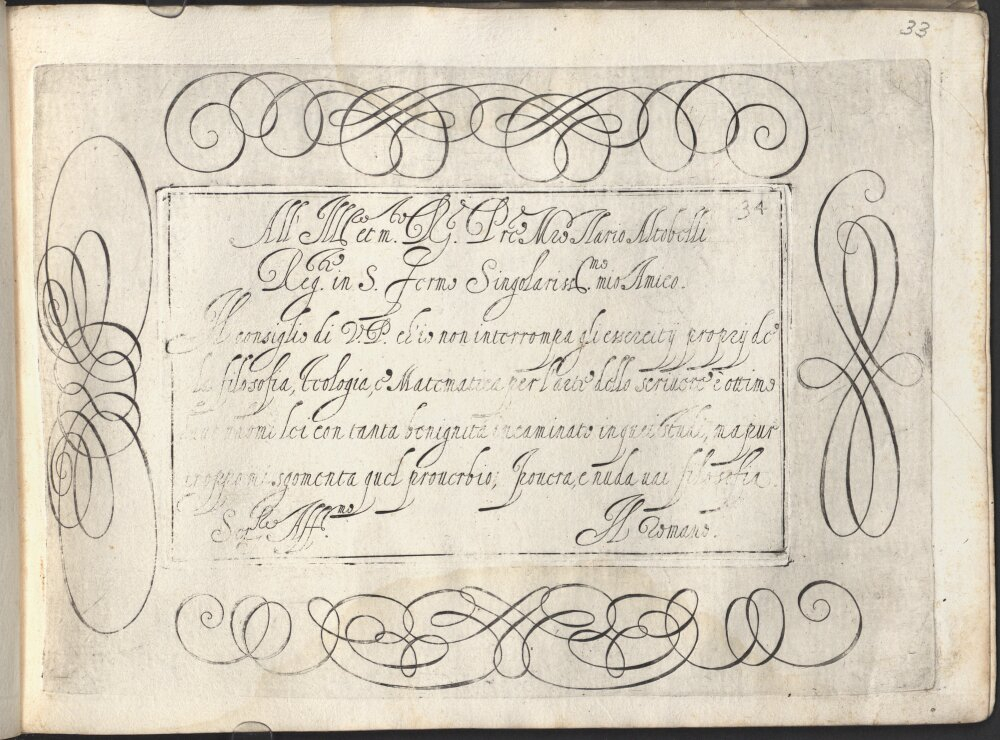 33
34
All' Ill.re et m.to R.do P.re Mro Ilario Altobelli
Reg.te in S. Fermo Singolariss.mo mio Amico.
Il consiglio di V.P. ch'io non interrompa gli essercitij proprij de
la filosofia, Teologia, e Matematica per l'arte dello scriuere è ottimo
con tanta benignità incaminato in quei studi, ma pur
troppo mi sgomenta quel prouerbio; Pouera, e nuda uai filosofia.
Aff.mo Il Romano.